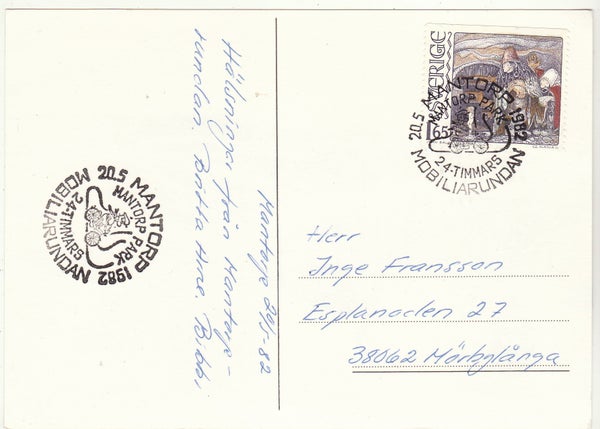 Mantorp 20/5-82
Hälsningar från Mantorp-
rundan.
SVERIGE
1.65
20.5 MANTORP 1982
MANTORP PARK
24-TIMMARS
MOBILIARUNDAN
20.5 MANTORP 1982
MANTORP PARK
24-TIMMARS
MOBILIARUNDAN
Herr
Inge Fransson
Esplanaden 27
38062 Mörbylånga